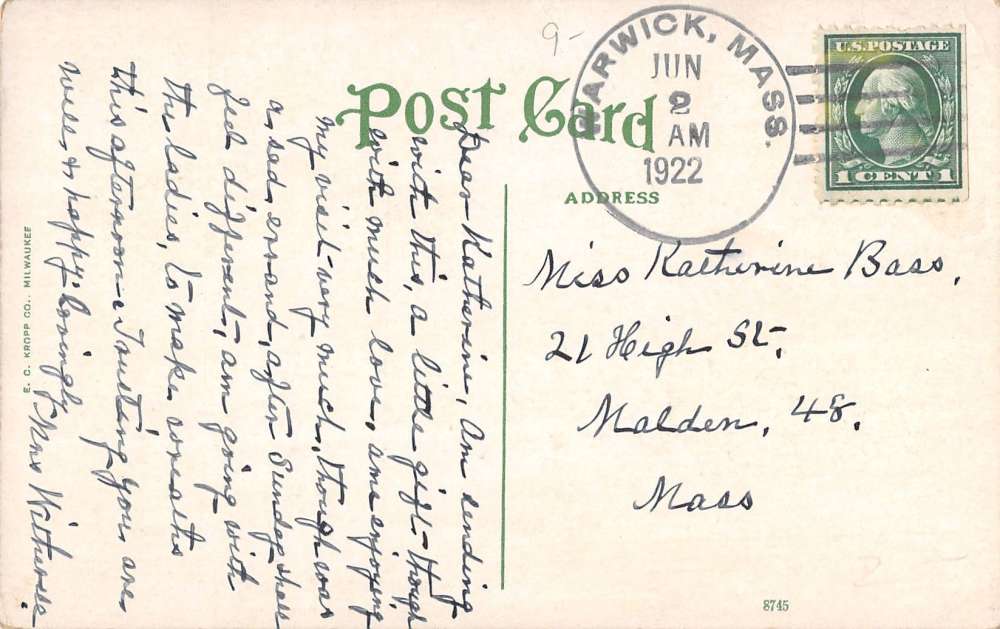 9-
Post Card
HARWICK, MASS.
JUN
2
AM
1922
U.S. POSTAGE
1 CENT 1
ADDRESS
Miss Katherine Bass,
21 High St,
Malden, 48,
Mass
Dear Katherine, Am sending
with this, a little gift - though
with much love, am enjoying
my visit very much, though was
a sad errand, after Sunday shall
feel different, am going with
the ladies, to make wreaths
this afternoon - Trusting you are
well, & happy. Lovingly Mrs
E. C. KROPP CO., MILWAUKEE
8745